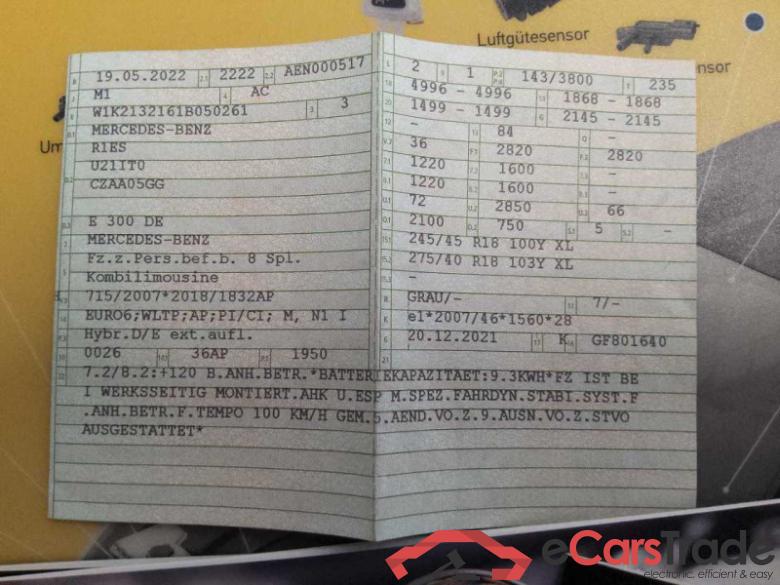 Luftgütesensor
nsor
Um
B 19.05.2022 2.1 2222 2.2 AEN000517
J M1 4 AC
E W1K2132161B050261 3 3
D.1 MERCEDES-BENZ
R1ES
U21IT0
D.2 CZAA05GG
D.3 E 300 DE
2 MERCEDES-BENZ
Fz.z.Pers.bef.b. 8 Spl.
5 Kombilimousine
V.9 715/2007*2018/1832AP
14 EURO6;WLTP;AP;PI/CI; M, N1 I
Hybr.D/E ext.aufl.
10 0026 14.1 36AP P.1 1950
L 2 9 1 P.2 P.4 143/3800 T 235
18 4996 - 4996 19 1868 - 1868
20 1499 - 1499 G 2145 - 2145
12 - 13 84 Q -
V.7 36 F.1 2820 F.2 2820
7.1 1220 7.2 1600 7.3 -
8.1 1220 8.2 1600 8.3 -
U.1 72 U.2 2850 U.3 66
O.1 2100 O.2 750 S.1 5 S.2 -
15.1 245/45 R18 100Y XL
15.2 275/40 R18 103Y XL
15.3 -
R GRAU/- 11 7/-
K e1*2007/46*1560*28
6 20.12.2021 17 K 16 GF801640
21
22 7.2/8.2:+120 B.ANH.BETR.*BATTERIEKAPAZITAET:9.3KWH*FZ IST BE
I WERKSSEITIG MONTIERT.AHK U.ESP M.SPEZ.FAHRDYN.STABI.SYST.F
.ANH.BETR.F.TEMPO 100 KM/H GEM.5.AEND.VO.Z.9.AUSN.VO.Z.STVO
AUSGESTATTET*
eCarsTrade
electronic, efficient & easy